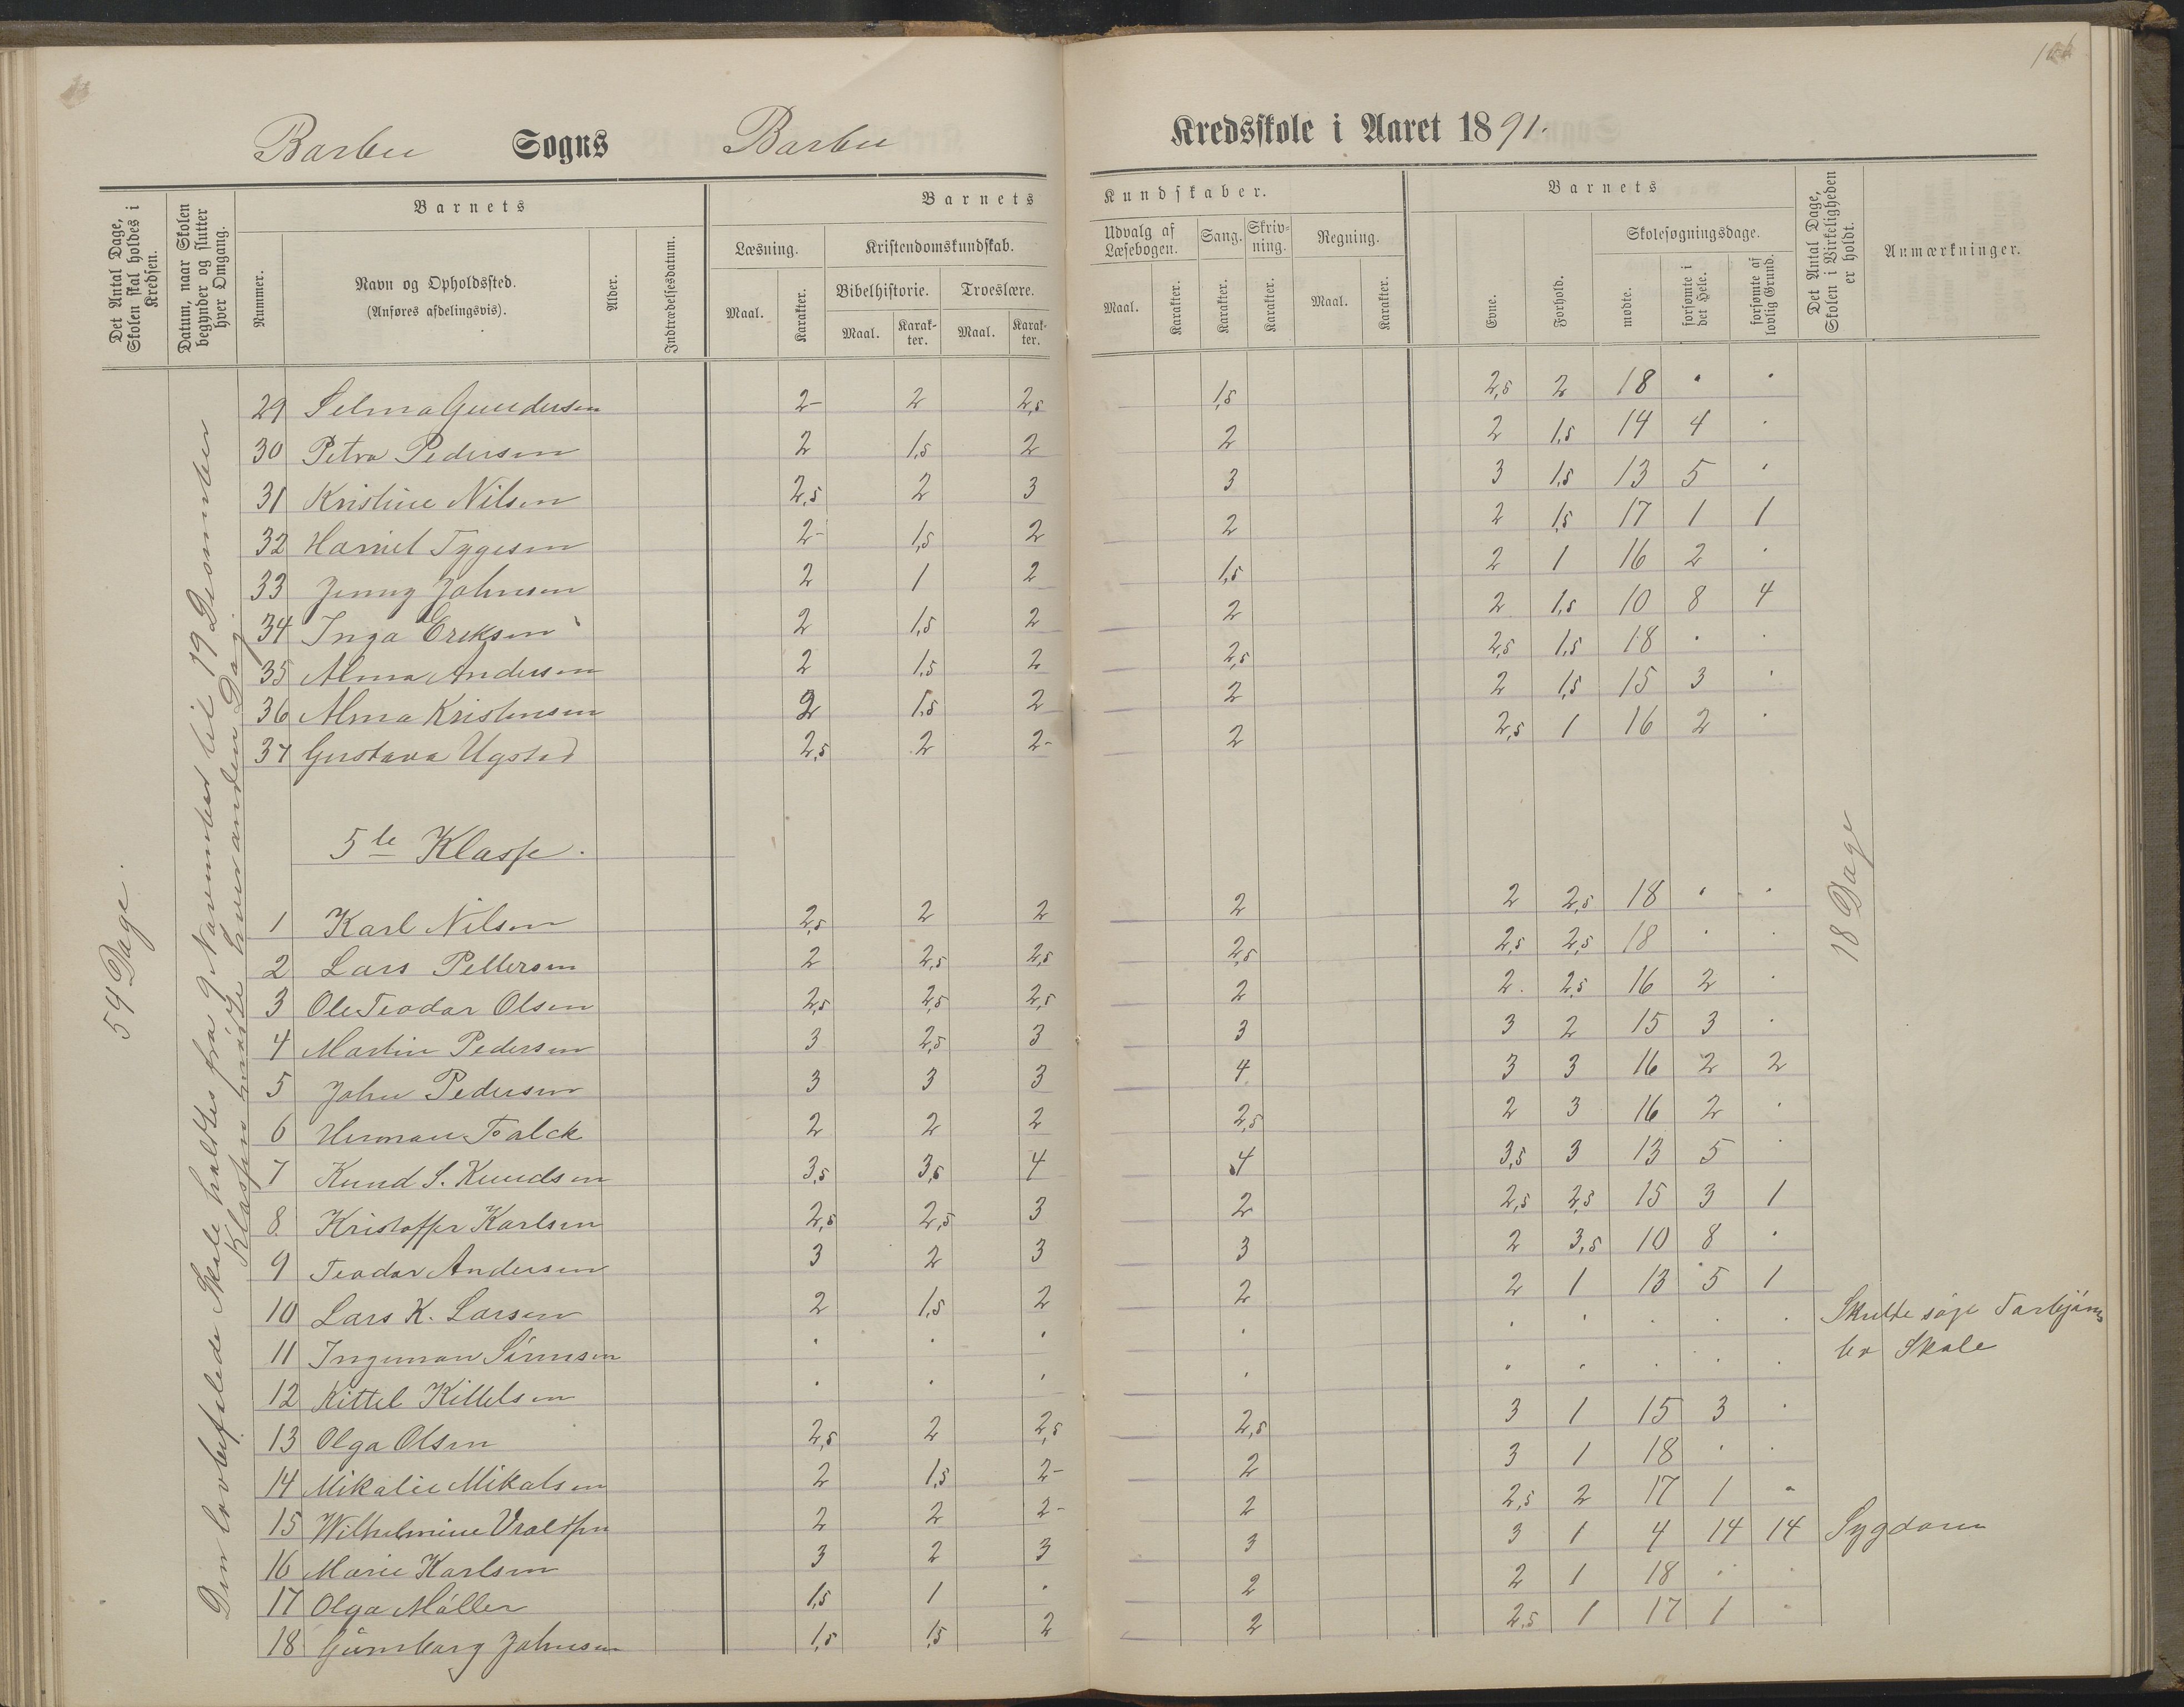 Barbu Sogns Barbu Kredsskole i Aaret 1891.
Det Antal Dage, Skolen skal holdes i Kredsen.
Datum, naar Skolen begynder og slutter hver Omgang.
Barnets
Nummer.
Navn og Opholdssted.
(Anføres afdelingsvis).
Alder.
Indtrædelsesdatum.
Barnets Kundskaber.
Læsning. Kristendomskundskab. Udvalg af Læsebogen. Sang. Skrivning. Regning.
Bibelhistorie. Troeslære.
Maal. Karakter. Maal. Karakter. Maal. Karakter. Maal. Karakter. Karakter. Karakter. Maal. Karakter.
Barnets
Evne. Forhold.
Skolesøgningsdage.
mødte. forsømte i det Hele. forsømte af lovlig Grund.
Det Antal Dage, Skolen i Virkeligheden er holdt.
Anmærkninger.
54 Dage.
Den lovbefalede Skole holdtes fra 9 November til 19 December
Klassen mødte hveranden Dag.
18 Dage
29 Selma Gundersen 2- 2 2,5 1,5 2,5 2 18 . .
30 Petra Pedersen 2 1,5 2 2 2 1,5 14 4 .
31 Kristine Nilsen 2,5 2 3 3 3 1,5 13 5 .
32 Harriet Tygesen 2- 1,5 2 2 2 1,5 17 1 1
33 Jenny Johnsen 2 1 2 1,5 2 1 16 2 .
34 Inga Eriksen 2 1,5 2 2 2 1,5 10 8 4
35 Alma Andersen 2 1,5 2 2,5 2,5 1,5 18 . .
36 Alma Kristensen 2 1,5 2 2 2 1,5 15 3 .
37 Gustava Ugstad 2,5 2 2- 2 2,5 1 16 2 .
5te Klasse.
1 Karl Nilsen 2,5 2 2 2 2 2,5 18 . .
2 Lars Pettersen 2 2,5 2,5 2,5 2,5 2,5 18 . .
3 Ole Teodor Olsen 2,5 2,5 2,5 2 2. 2,5 16 2 .
4 Martin Pedersen 3 2,5 3 3 3 2 15 3 .
5 John Pedersen 3 3 3 4 3 3 16 2 2
6 Herman Falck 2 2 2 2,5 2 3 16 2 .
7 Knud S. Knudsen 3,5 3,5 4 4 3,5 3 13 5 .
8 Kristoffer Karlsen 2,5 2,5 3 2 2,5 2,5 15 3 1
9 Teodor Andersen 3 2 3 3 2 3,5 10 8 .
10 Lars K. Larsen 2 1,5 2 2 2 1 13 5 1
11 Ingeman Sørensen . . . . . . . . . Skulde søge Torbjørns
12 Kittel Kittelsen . . . . . . . . . bo Skole
13 Olga Olsen 2,5 2 2,5 2,5 3 1 15 3 .
14 Mikalie Mikalsen 2 1,5 2- 2 3 1 18 . .
15 Wilhelmine Vraldsen 2 2 2- 2 2,5 2 17 1 .
16 Marie Karlsen 3 2 3 3 3 1 4 14 14 Sygdom
17 Olga Møller 1,5 1 . 2 2 1 18 . .
18 Gunborg Johnsen 1,5 1,5 2 2 2,5 1 17 1 .